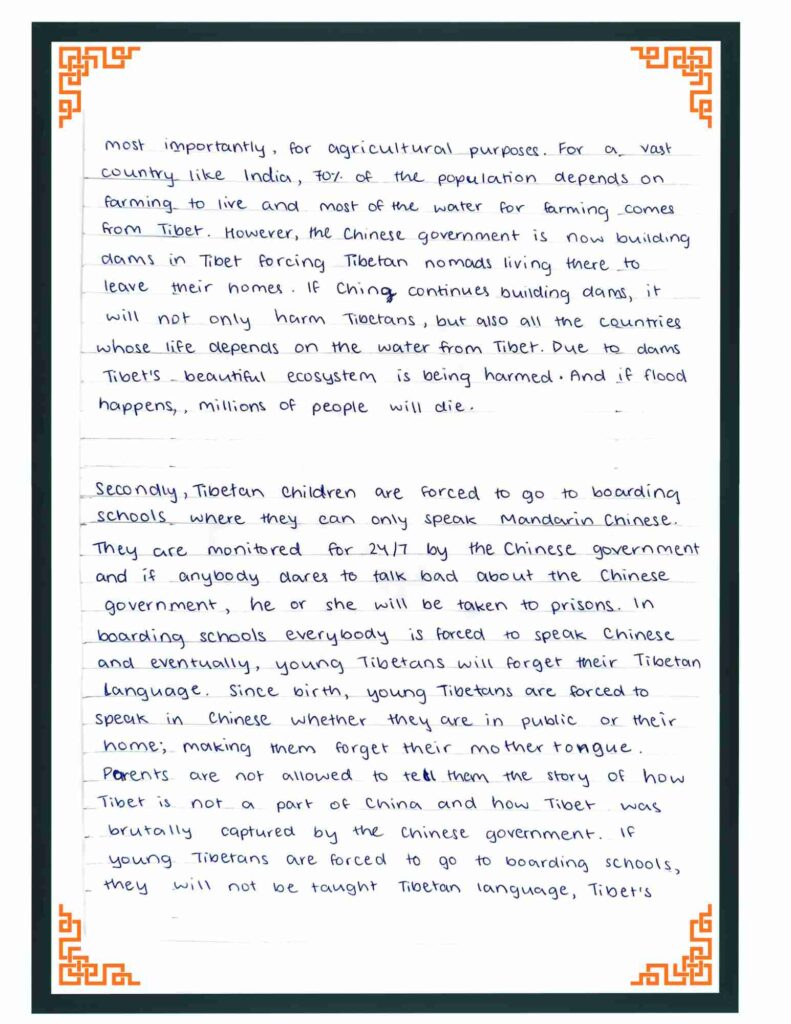 most importantly, for agricultural purposes. For a vast
country like India, 70% of the population depends on
farming to live and most of the water for farming comes
from Tibet. However, the Chinese government is now building
dams in Tibet forcing Tibetan nomads living there to
leave their homes. If China continues building dams, it
will not only harm Tibetans, but also all the countries
whose life depends on the water from Tibet. Due to dams
Tibet's beautiful ecosystem is being harmed. And if flood
happens,, millions of people will die.
Secondly, Tibetan children are forced to go to boarding
schools where they can only speak Mandarin Chinese.
They are monitored for 24/7 by the Chinese government
and if anybody dares to talk bad about the Chinese
government, he or she will be taken to prisons. In
boarding schools everybody is forced to speak Chinese
and eventually, young Tibetans will forget their Tibetan
Language. Since birth, young Tibetans are forced to
speak in Chinese whether they are in public or their
home; making them forget their mother tongue.
Parents are not allowed to tell them the story of how
Tibet is not a part of China and how Tibet was
brutally captured by the Chinese government. If
young Tibetans are forced to go to boarding schools,
they will not be taught Tibetan language, Tibet's